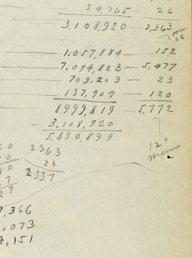 24,765 26
3,108,920 — 2,363
26
1.057,884 — 152
7.094,823 — 5,477
709,203 — 23
137,909 — 120
8,999,819 5,772
3,108,920
5,890,899
2363
26
2337
12
,366
,073
,151